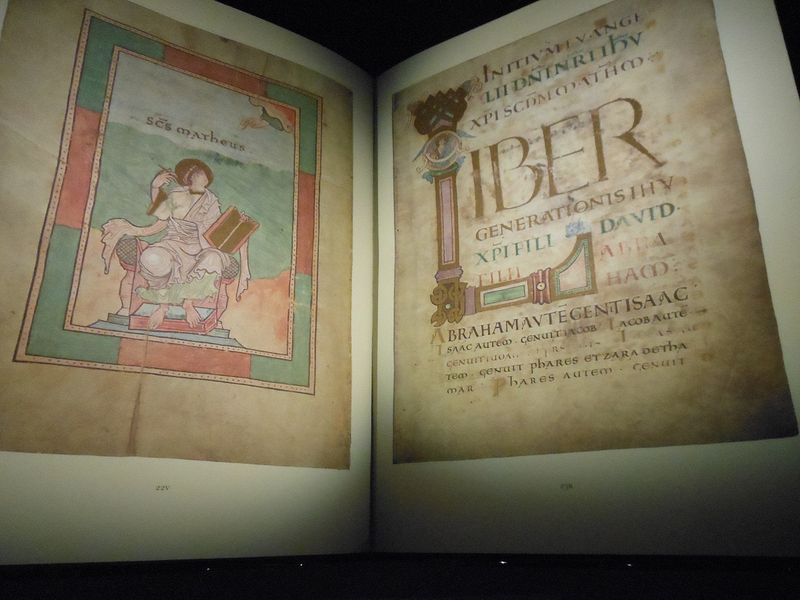 SCS MATHEUS
22V
INITIUM EVANGE
LII DNI NRI IHU
XPI SCDM MATHM
LIBER
GENERATIONIS IHU
XPI FILI DAVID·
FILII ABRA
HAM:
ABRAHAM AUTE GENT ISAAC·
ISAAC AUTEM· GENUIT IACOB IACOB AUTE·
GENUIT
TEM· GENUIT PHARES ET ZARA DE THA
MAR· PHARES AUTEM· GENUIT